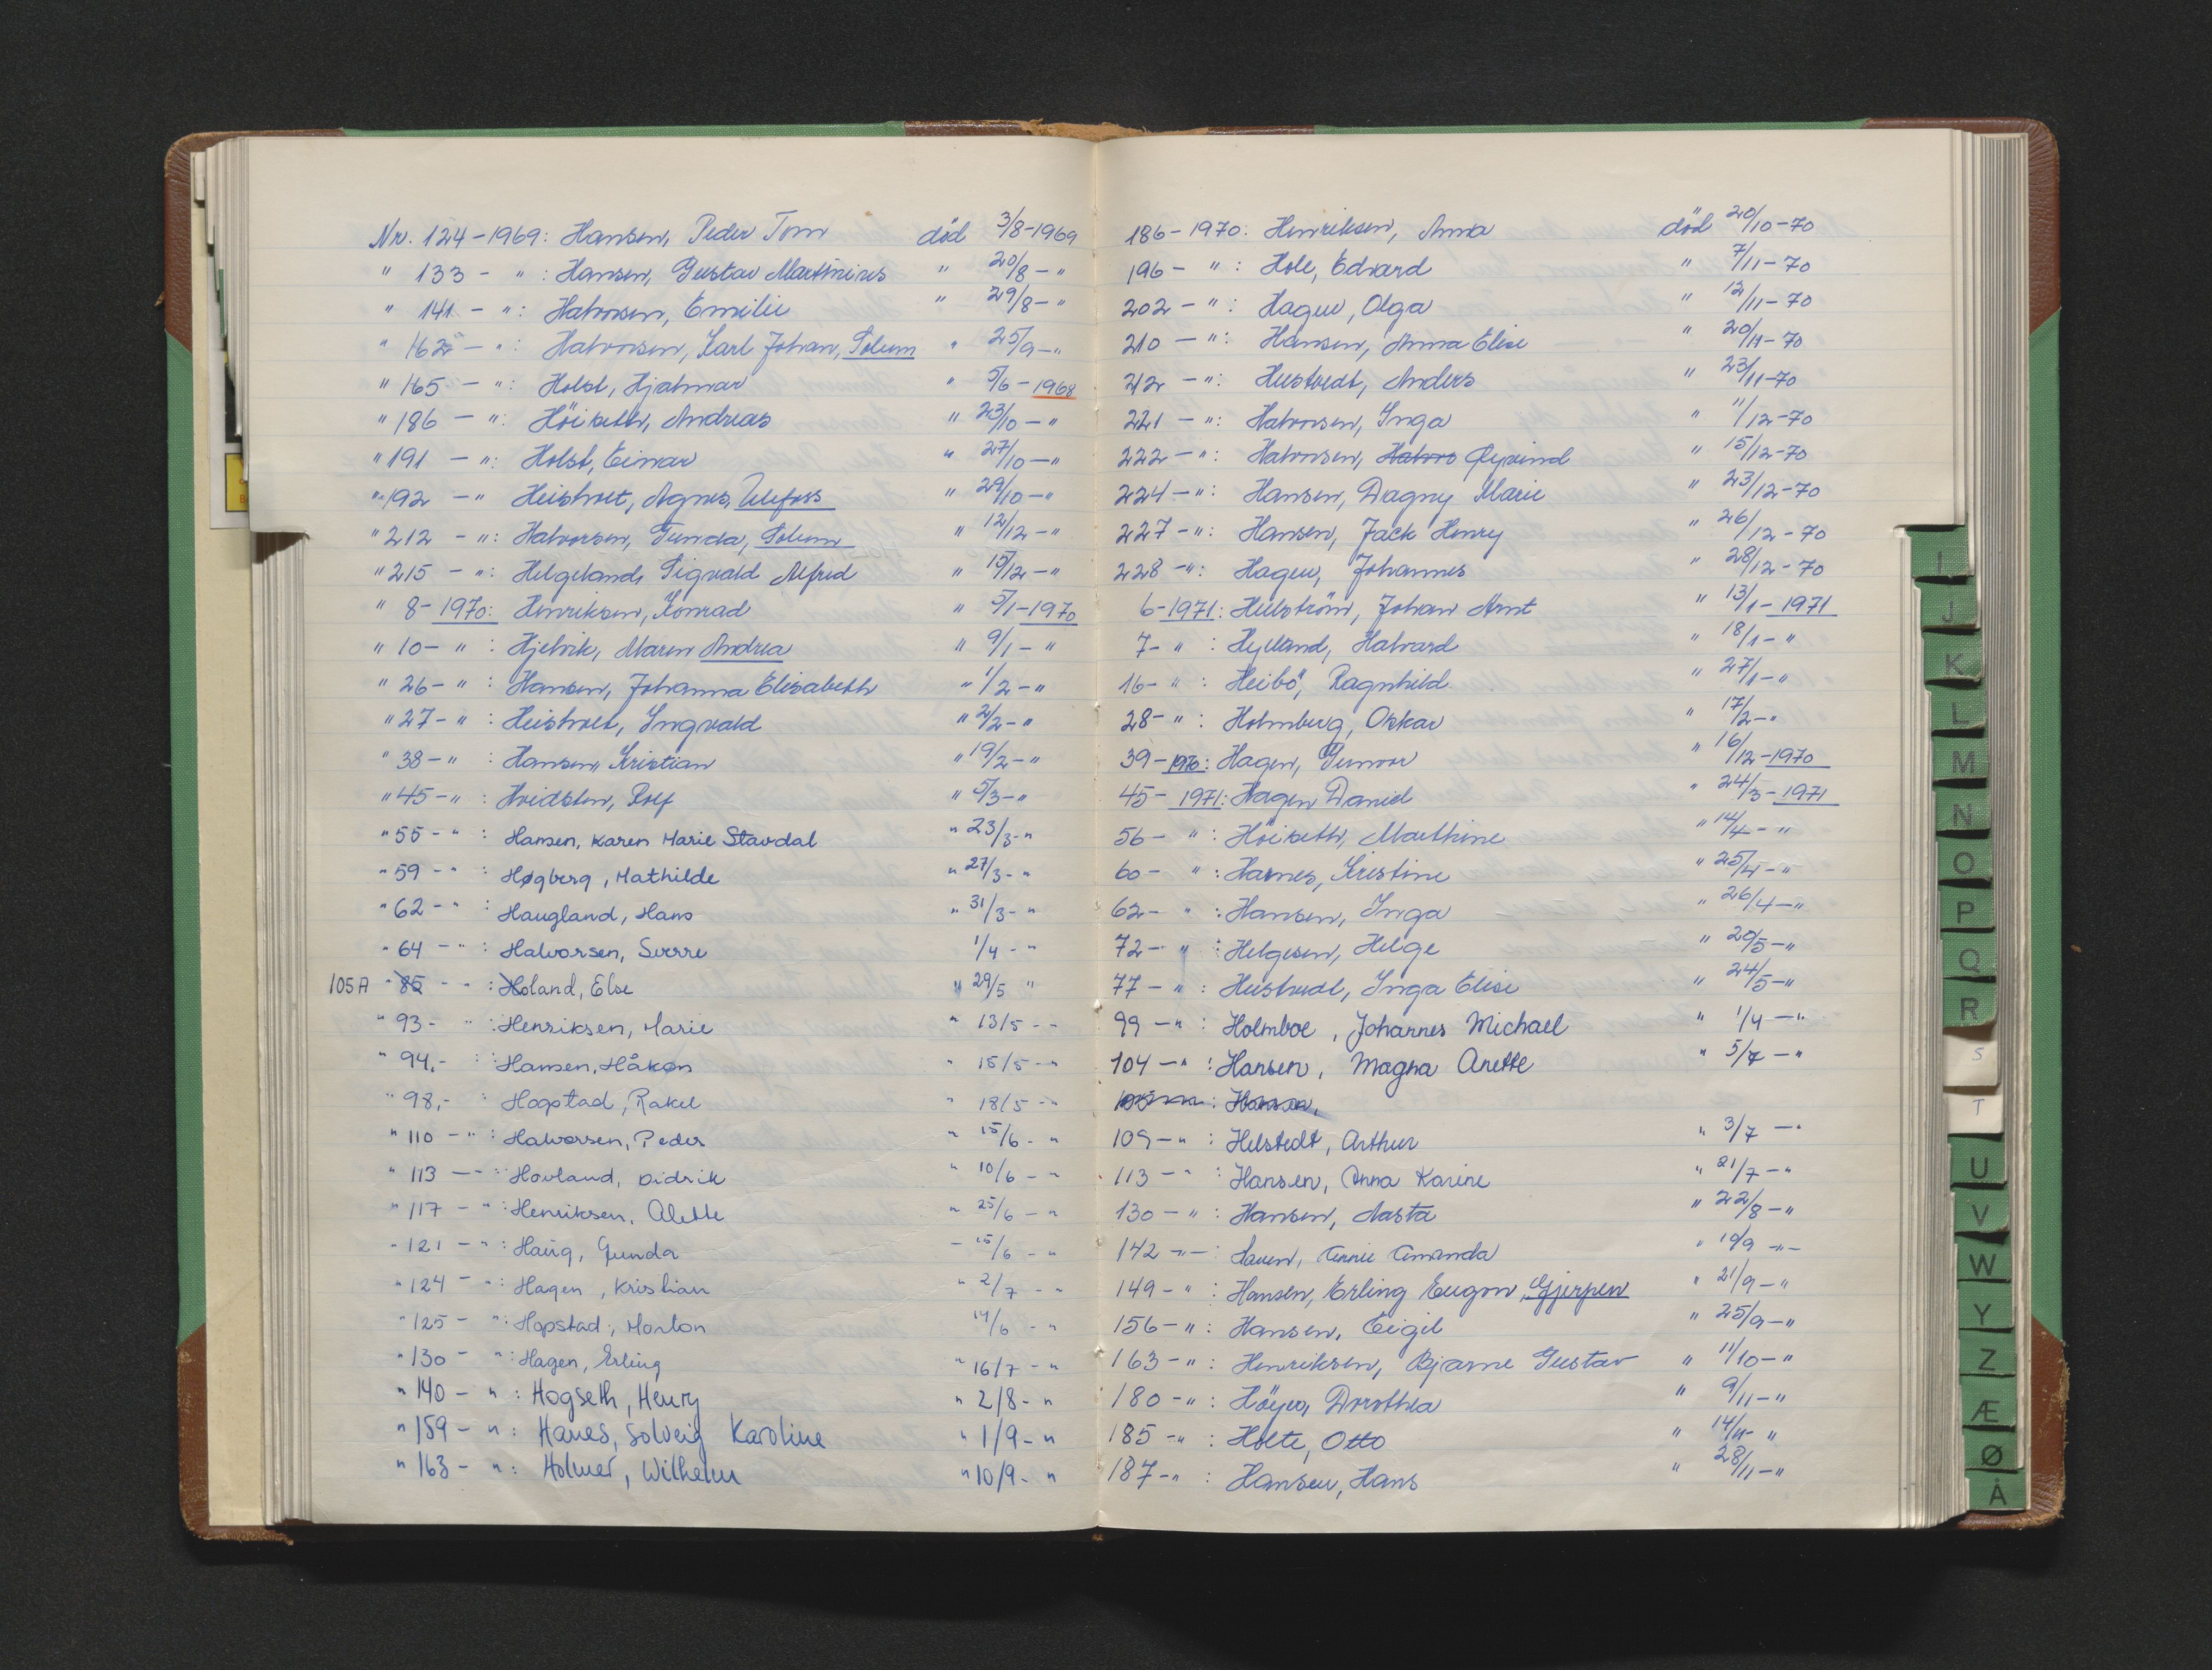 Nr. 124-1969: Hansen, Peder Tom død 3/8-1969
" 133 - " : Hansen, Gustav Martinius " 20/8 - "
" 141 - " : Halvorsen, Emilie " 29/8 - "
" 162 - " : Halvorsen, Karl Johan, Solum " 25/9 - "
" 165 - " : Holst, Hjalmar " 5/6 - 1968
" 186 - " : Höiseth, Andreas " 23/10 - "
" 191 - " : Holst, Einar " 27/10 - "
" 192 - " Heistvet, Agnes, Ulefoss " 29/10 - "
" 212 - " : Halvorsen, Gunda, Solum " 12/12 - "
" 215 - " : Helgeland, Sigvald Alfred " 15/12 - "
" 8 - 1970: Henriksen, Konrad " 5/1 - 1970
" 10 - " : Hjelvik, Maren Andrea " 9/1 - "
" 26 - " : Hansen, Johanna Elisabeth " 1/2 - "
" 27 - " : Heistvet, Ingvald " 2/2 - "
" 38 - " : Hansen, Kristian " 19/2 - "
" 45 - " : Hvidsten, Rolf " 5/3 - "
" 55 - " : Hansen, Karen Marie Stavdal " 23/3 - "
" 59 - " : Høgberg, Mathilde " 27/3 - "
" 62 - " : Haugland, Hans " 31/3 - "
" 64 - " : Halvorsen, Sverre 1/4 - "
105A " 85 - " : Holand, Else " 29/5 "
" 93 - " : Henriksen, Marie " 13/5 - "
" 94. - : Hansen, Håkon " 15/5 - "
" 98. - : Hopstad, Rakel " 18/5 - "
" 110 - " : Halvorsen, Peder " 15/6 - "
" 113 - " : Hovland, Didrik " 10/6 - "
" 117 - " : Henriksen, Alette " 25/6 - "
" 121 - " : Haug, Gunda - 15/6 - "
" 124 - " : Hagen, Kristian " 2/7 - "
" 125 - " : Hopstad, Morton 14/6 - "
" 130 - " : Hagen, Erling " 16/7 - "
" 140 - " : Hogseth, Henry " 2/8 - "
" 159 - " : Hanes, Solveig Karoline " 1/9 - "
" 163 - " : Holmer, Wilhelm " 10/9 - "
186 - 1970: Henriksen, Anna død 20/10-70
196 - " : Hole, Edvard " 7/11-70
202 - " : Hagen, Olga " 12/11-70
210 - " : Hansen, Anna Elise " 20/11-70
212 - " : Heistvedt, Anders " 23/11-70
221 - " : Halvorsen, Inga " 11/12-70
222 - " : Halvorsen, Halvors Øyvind " 15/12-70
224 - " : Hansen, Dagny Marie " 23/12-70
227 - " : Hansen, Jack Henry " 26/12-70
228 - " : Hagen, Johannes " 28/12-70
6 - 1971: Hellström, Johan Arnt " 13/1 - 1971
7 - " : Hylland, Halvard " 18/1 - "
16 - " : Heibö, Ragnhild " 27/1 - "
28 - " : Holmberg, Oskar " 17/2 - "
39 - 1970: Hagen, Gunvor " 16/12 - 1970
45 - 1971: Hagen Daniel " 24/3 - 1971
56 - " : Höiseth, Marthine " 14/4 - "
60 - " : Harnes, Kristine " 25/4 - "
62 - " : Hansen, Inga " 26/4 - "
72 - " : Helgesen, Helge " 20/5 - "
77 - " : Heistvedt, Inga Elise " 24/5 - "
99 - " : Holmboe, Johannes Michael " 1/4 - "
104 - " : Hansen, Magna Anette " 5/7 - "
109 - " : Helstedt, Arthur " 3/7 - "
113 - " : Hansen, Anna Karine " 21/7 - "
130 - " : Hansen, Aasta " 22/8 - "
142 - " - : Hauen, Annie Amanda " 19/9 - " -
149 - " : Hansen, Erling Eugon, Gjerpen " 21/9 - "
156 - " : Hansen, Eigil " 25/9 - "
163 - " : Henriksen, Bjarne Gustav " 11/10 - "
180 - " : Höyer, Dorothea " 9/11 - "
185 - " : Holte, Otto " 14/11 - "
187 - " : Hansen, Hans " 28/11 - "
I
J
K
L
M
N
O
P
Q
R
S
T
U
V
W
Y
Z
Æ
Ø
Å